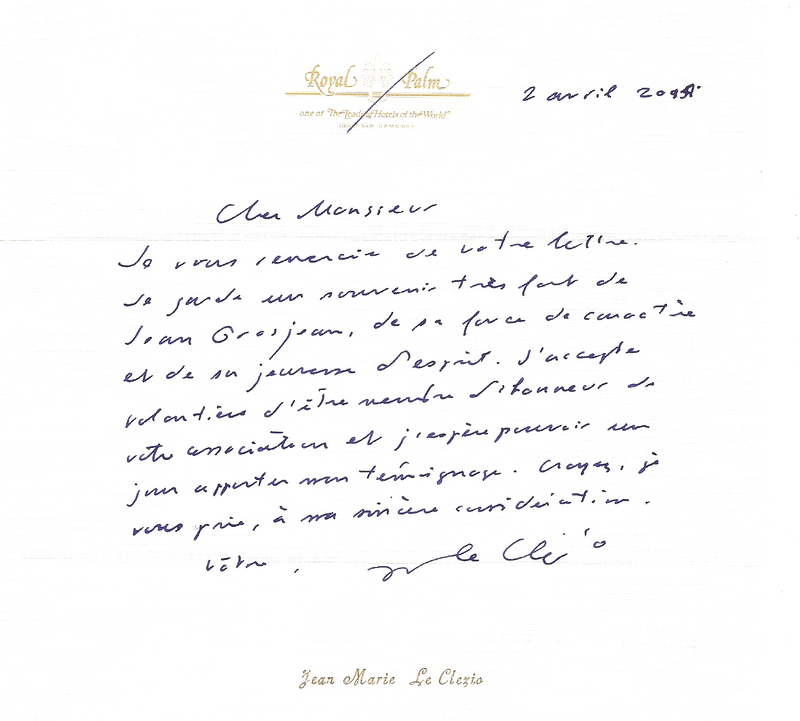 Royal Palm
one of "The Leading Hotels of the World"
2 avril
Cher Monsieur
Je vous remercie de votre lettre.
Je garde un souvenir très fort de
Jean Grosjean, de sa force de caractère
et de sa jeunesse d'esprit. J'accepte
volontiers d'être membre d'honneur de
votre association et j'espère pouvoir un
jour apporter mon témoignage. Croyez, je
vous prie, à ma sincère considération.
Vôtre,
Le Clézio
Jean Marie Le Clezio